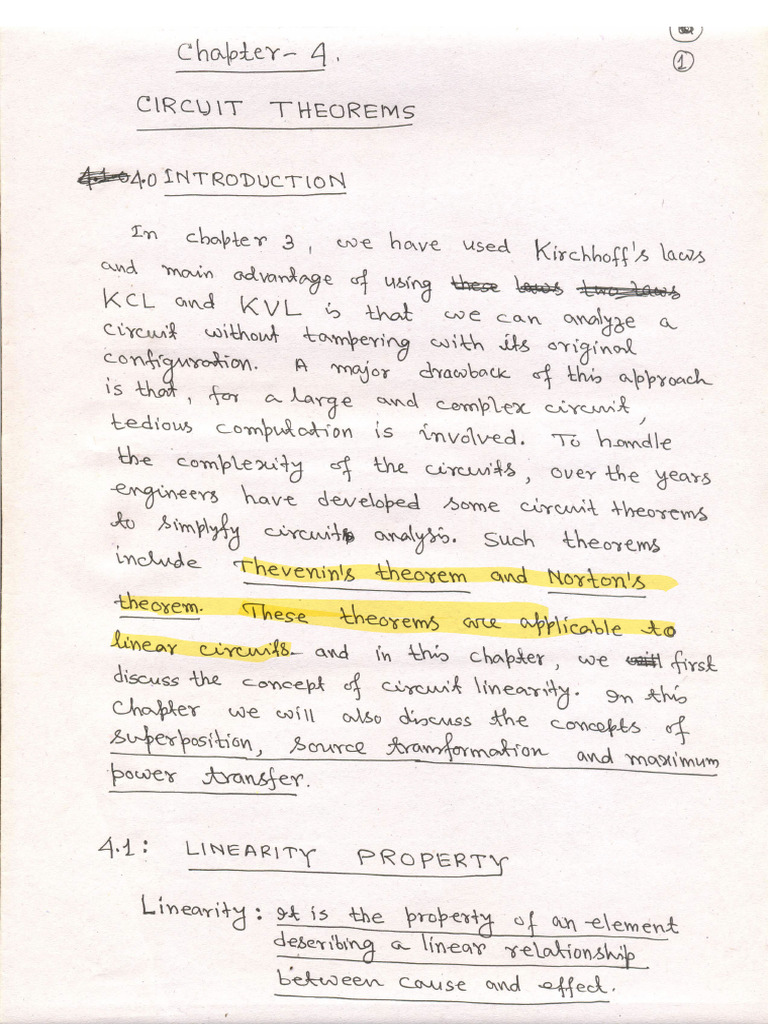 Chapter - 4.
1
CIRCUIT THEOREMS
4.0 INTRODUCTION
In chapter 3, we have used Kirchhoff's laws
and main advantage of using these laws two laws
KCL and KVL is that we can analyze a
circuit without tampering with its original
configuration. A major drawback of this approach
is that, for a large and complex circuit,
tedious computation is involved. To handle
the complexity of the circuits, over the years
engineers have developed some circuit theorems
to simplyfy circuits analysis. Such theorems
include Thevenin's theorem and Norton's
theorem. These theorems are applicable to
linear circuits and in this chapter, we will first
discuss the concept of circuit linearity. In this
Chapter we will also discuss the concepts of
superposition, source transformation and maximum
power transfer.
4.1: LINEARITY PROPERTY
Linearity: It is the property of an element
describing a linear relationship
between cause and effect.